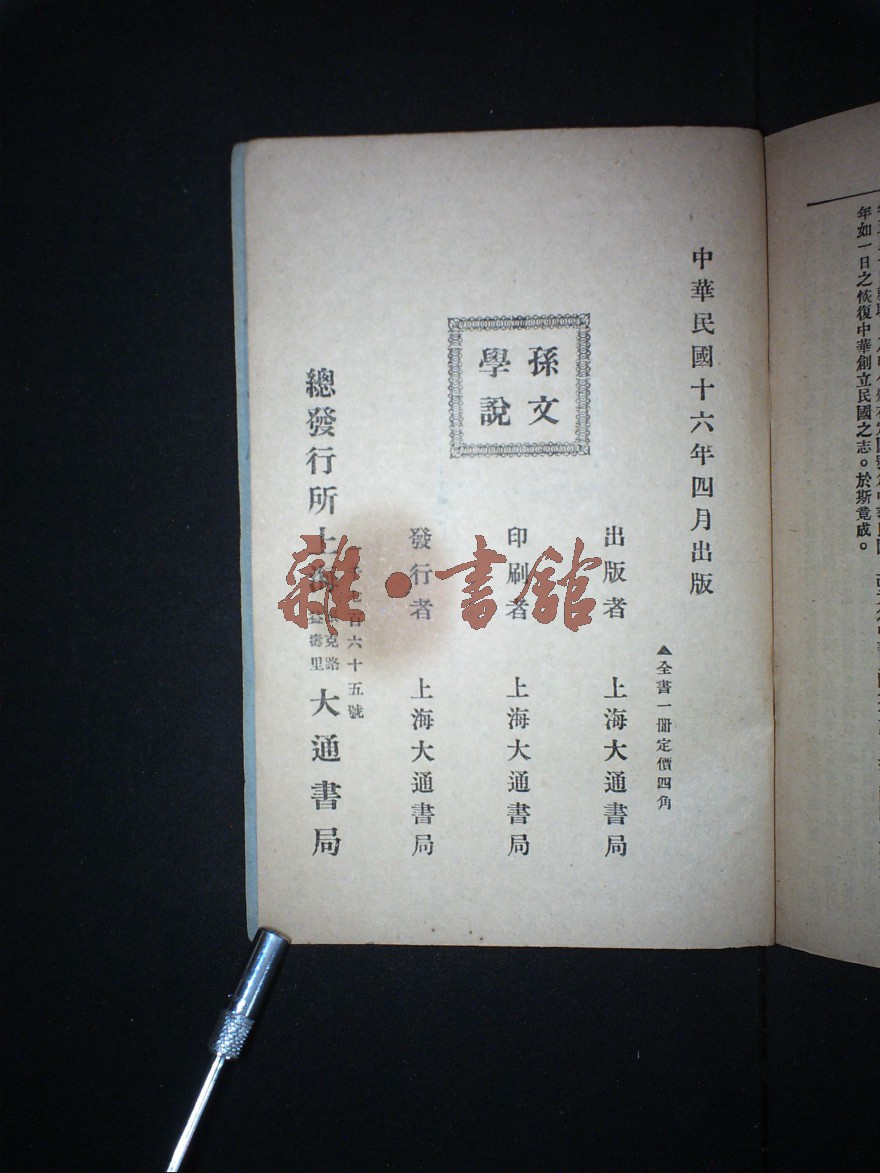 年如一日之恢復中華創立民國之志。於斯竟成。
中華民國十六年四月出版
▲全書一冊定價四角
孫文
學說
出版者 上海大通書局
印刷者 上海大通書局
發行者 上海大通書局
百六十五號
總發行所上海 克路 里 大通書局
雜·書館